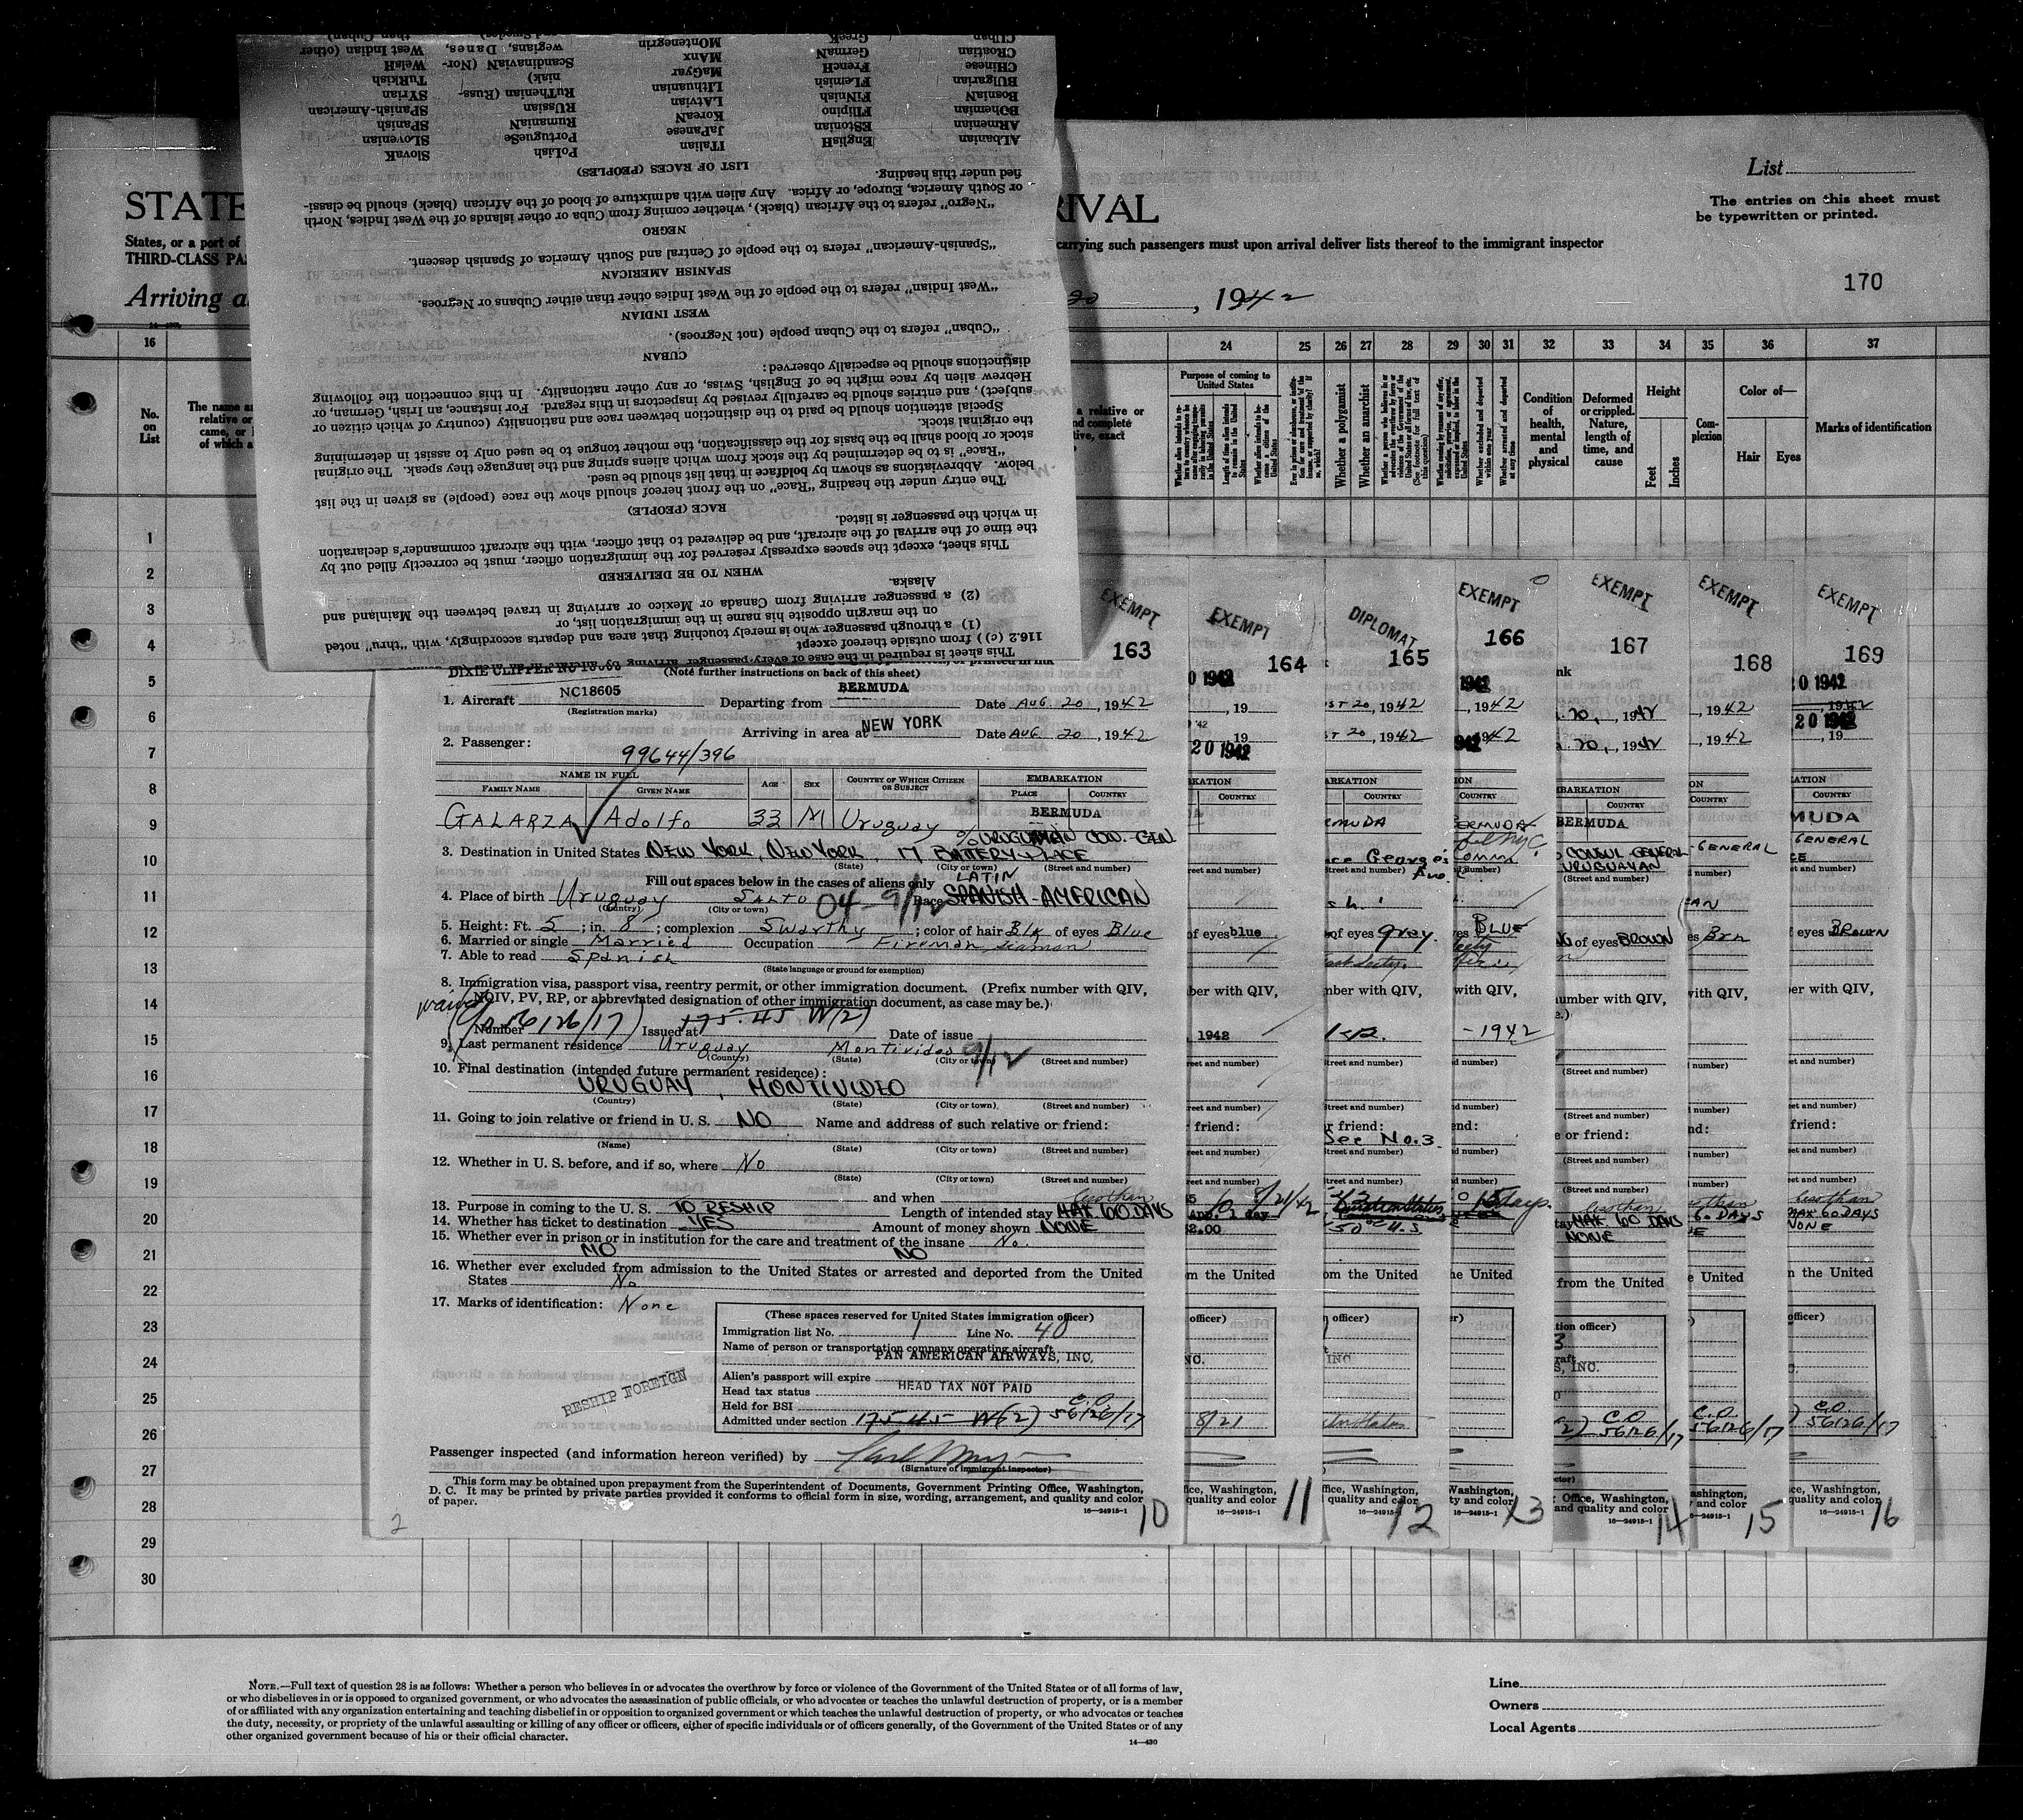 SlovaK
SLOvenian
SPanish
SPanish-American
SYRian
TuRKish
WelsH
West Indian (other
than Cuban)
PoLish
PortugueSe
RumaniaN
RUSsian
RuTHenian (Russ-
niak)
ScandinaviaN (Nor-
wegians, Danes,
and Swedes)
ITAlian
JaPanese
KoreaN
LAtvian
LIthuanian
MaGyar
MAnx
MOntenegrin
EnglisH
EStonian
FIlipino
FiNnish
FLemish
FrencH
GermaN
GreeK
ALbanian
ARmenian
BOhemian
BosniaN
BUlgarian
CHinese
CRoatian
CUban
LIST OF RACES (PEOPLES)
fied under this heading.
or South America, Europe, or Africa. Any alien with admixture of blood of the African (black) should be classi-
"Negro" refers to the African (black), whether coming from Cuba or other islands of the West Indies, North
NEGRO
"Spanish-American" refers to the people of Central and South America of Spanish descent.
SPANISH AMERICAN
"West Indian" refers to the people of the West Indies other than either Cubans or Negroes.
WEST INDIAN
"Cuban" refers to the Cuban people (not Negroes).
CUBAN
distinctions should be especially observed:
Hebrew alien by race might be of English, Swiss, or any other nationality. In this connection the following
subject), and entries should be carefully revised by inspectors in this regard. For instance, an Irish, German, or
Special attention should be paid to the distinction between race and nationality (country of which citizen or
the original stock.
stock or blood shall be the basis for the classification, the mother tongue to be used only to assist in determining
"Race" is to be determined by the stock from which aliens spring and the language they speak. The original
below. Abbreviations as shown by boldface in that list should be used.
The entry under the heading "Race" on the front hereof should show the race (people) as given in the list
RACE (PEOPLE)
in which the passenger is listed.
the time of the arrival of the aircraft, and be delivered to that officer, with the aircraft commander's declaration
This sheet, except the spaces expressly reserved for the immigration officer, must be correctly filled out by
WHEN TO BE DELIVERED
Alaska.
(2) a passenger arriving from Canada or Mexico or arriving in travel between the Mainland and
on the margin opposite his name in the immigration list, or
(1) a through passenger who is merely touching that area and departs accordingly, with "thru" noted
116.2 (c)) from outside thereof except
This sheet is required in the case of every passenger arriving by aircraft
STATE
RIVAL
List
The entries on this sheet must
be typewritten or printed.
States, or a port of
THIRD-CLASS PA
carrying such passengers must upon arrival deliver lists thereof to the immigrant inspector
Arriving a
20, 1942
170
16 24 25 26 27 28 29 30 31 32 33 34 35 36 37
No.
on
List
The name a
relative or
came, or
of which a
a relative or
nd complete
tive, exact
Purpose of coming to
United States
Whether a polygamist
Whether an anarchist
Condition
of
health,
mental
and
physical
Deformed
or crippled.
Nature,
length of
time, and
cause
Height
Feet
Inches
Com-
plexion
Color of—
Hair
Eyes
Marks of identification
1
2
3
4
5
6
7
8
9
10
11
12
13
14
15
16
17
18
19
20
21
22
23
24
25
26
27
28
29
30
EXEMPT
163
DIXIE CLIPPER
(Note further instructions on back of this sheet)
1. Aircraft NC18605 Departing from BERMUDA Date AUG. 20, 1942
(Registration marks)
Arriving in area at NEW YORK Date AUG. 20, 1942
2. Passenger:
99644/396
NAME IN FULL
FAMILY NAME
GIVEN NAME
AGE
SEX
COUNTRY OF WHICH CITIZEN
OR SUBJECT
EMBARKATION
PLACE
COUNTRY
GALARZA Adolfo 33 M Uruguay BERMUDA
% URUGUAYAN CON. GEN
3. Destination in United States NEW YORK, NEW YORK, 17 BATTERY PLACE
(State) (City or town) (Street and number)
Fill out spaces below in the cases of aliens only
LATIN
4. Place of birth Uruguay SALTO Race SPANISH-AMERICAN
(Country) (City or town)
04 9/12
5. Height: Ft. 5; in. 8; complexion Swarthy; color of hair Blk of eyes Blue
6. Married or single Married Occupation Fireman seaman
7. Able to read Spanish
(State language or ground for exemption)
8. Immigration visa, passport visa, reentry permit, or other immigration document. (Prefix number with QIV,
NQIV, PV, RP, or abbreviated designation of other immigration document, as case may be.)
Number 56126/17 Issued at 175.45 W(2) Date of issue
9. Last permanent residence Uruguay Montivideo 9/12
(Country) (State) (City or town) (Street and number)
10. Final destination (intended future permanent residence):
URUGUAY, MONTIVIDEO
(Country) (State) (City or town) (Street and number)
11. Going to join relative or friend in U. S. NO Name and address of such relative or friend:
(Name) (State) (City or town) (Street and number)
12. Whether in U. S. before, and if so, where No
(State) (City or town) (Street and number)
and when
less than
13. Purpose in coming to the U. S. TO RESHIP Length of intended stay MAX 60 DAYS
14. Whether has ticket to destination YES Amount of money shown NONE
15. Whether ever in prison or in institution for the care and treatment of the insane No.
NO NO
16. Whether ever excluded from admission to the United States or arrested and deported from the United
States No
17. Marks of identification: None
(These spaces reserved for United States immigration officer)
Immigration list No. 1 Line No. 40
Name of person or transportation company operating aircraft
PAN AMERICAN AIRWAYS, INC.
Alien's passport will expire
Head tax status HEAD TAX NOT PAID
Held for BSI
C.O.
Admitted under section 175.45 W(2) 56126/17
RESHIP FOREIGN
Passenger inspected (and information hereon verified) by
(Signature of immigrant inspector)
This form may be obtained upon prepayment from the Superintendent of Documents, Government Printing Office, Washington,
D. C. It may be printed by private parties provided it conforms to official form in size, wording, arrangement, and quality and color
of paper.
16—24915-1
2
10
EXEMPT
164
0 1942
, 19
20 1942
KATION
COUNTRY
of eyes blue
ber with QIV,
1942
eet and number)
friend:
8/21/42
$2.00
m the United
officer)
NC.
8/21
ice, Washington,
quality and color
16—24915-1
11
DIPLOMAT
165
ST 20, 1942
ST 20, 1942
ARKATION
COUNTRY
RMUDA
ce George's
of eyes grey.
nber with QIV,
r friend:
See No. 3.
om the United
n officer)
INC
ffice, Washington,
quality and color
12
EXEMPT
166
1942
, 1942
1942
ION
COUNTRY
BERMUDA
BLUE
with QIV,
- 1942
end:
15 days.
he United
Washington,
ty and color
16—24915-1
13
EXEMPT
167
nk
. 20, 1942
. 20, 1942
BARKATION
COUNTRY
BERMUDA
CONSUL GENERAL
URUGUAYAN
(Street and number)
of eyes BROWN
umber with QIV,
e or friend:
less than
MAX 60 DAYS
NONE
from the United
tion officer)
S, INC.
C.O.
56126/17
Office, Washington,
and quality and color
16—24915-1
14
EXEMPT
168
, 1942
, 1942
ON
COUNTRY
-GENERAL
es Brn
with QIV,
nd:
60 DAYS
e United
C.O.
56126/17
ashington,
and color
15
EXEMPT
169
20 1942
20 1942
, 19
ATION
COUNTRY
MUDA
GENERAL
f eyes BROWN
er with QIV,
friend:
less than
MAX 60 DAYS
NONE
n the United
officer)
C.O.
56126/17
ce, Washington,
quality and color
16—24915-1
16
NOTE.—Full text of question 28 is as follows: Whether a person who believes in or advocates the overthrow by force or violence of the Government of the United States or of all forms of law,
or who disbelieves in or is opposed to organized government, or who advocates the assassination of public officials, or who advocates or teaches the unlawful destruction of property, or is a member
of or affiliated with any organization entertaining and teaching disbelief in or opposition to organized government or which teaches the unlawful destruction of property, or who advocates or teaches
the duty, necessity, or propriety of the unlawful assaulting or killing of any officer or officers, either of specific individuals or of officers generally, of the Government of the United States or of any
other organized government because of his or their official character.
14—430
Line
Owners
Local Agents